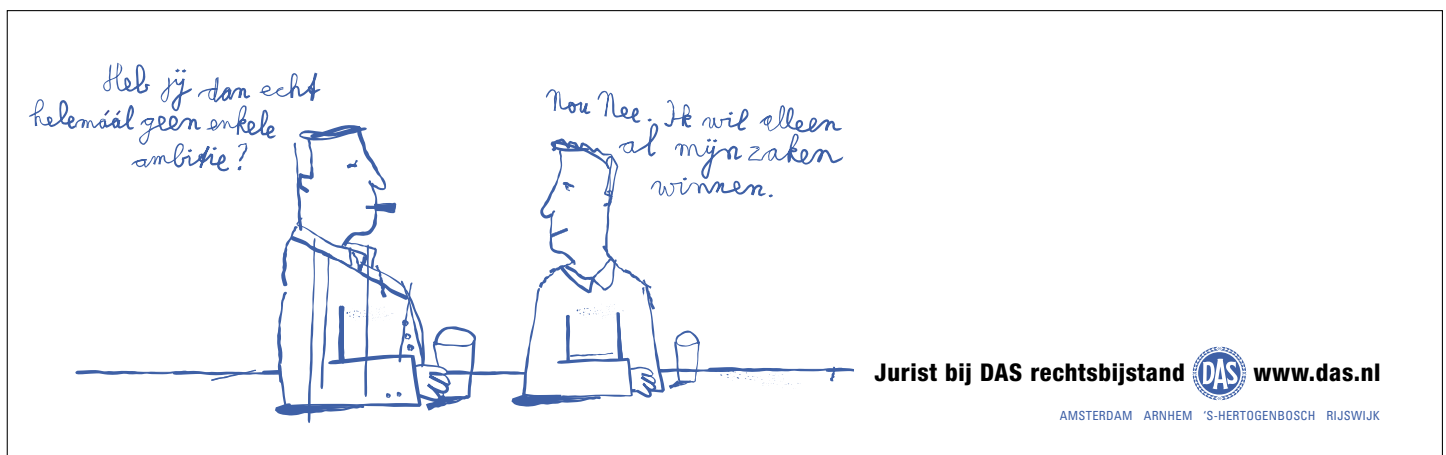 Heb jij dan echt
helemáál geen enkele
ambitie?
Nou Nee. Ik wil alleen
al mijn zaken
winnen.
Jurist bij DAS rechtsbijstand DAS www.das.nl
AMSTERDAM ARNHEM 'S-HERTOGENBOSCH RIJSWIJK